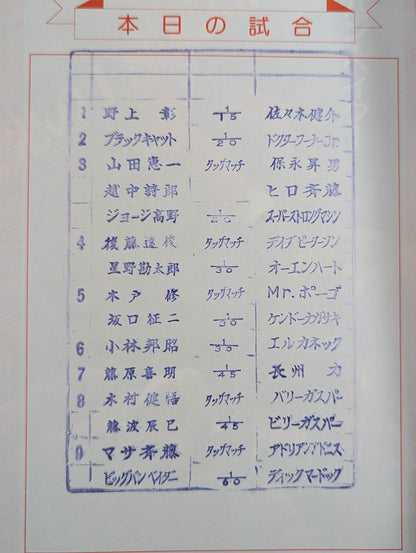 本日の試合
1 野上 彰 1/15 佐々木健介
2 ブラックキャット 1/20 ドクターワーナーJr.
3 山田恵一 タッグマッチ 保永昇男
越中詩郎 ヒロ斉藤
ジョージ高野 1/20 スーパーストロングマシン
4 後藤達俊 タッグマッチ デイブピーターソン
星野勘太郎 1/30 オーエンハート
5 木戸 修 タッグマッチ Mr.ポーゴ
坂口征二 1/30 ケンドーナガサキ
6 小林邦昭 1/30 エルカネック
7 藤原喜明 1/45 長州 力
8 木村健悟 タッグマッチ バリーガスパー
藤波辰巳 1/45 ビリーガスパー
9 マサ斉藤 タッグマッチ アドリアンアドニス
ビッグバンベイダー 1/60 ディックマードック